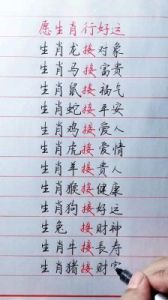 愿生肖行好运
生肖龙接对象
生肖马接富贵
生肖鼠接福气
生肖蛇接平安
生肖鸡接爱人
生肖虎接爱情
生肖羊接貴人
生肖猴接健康
生肖狗接好运
生兔 接财神
生肖牛接長寿
生肖猪接财